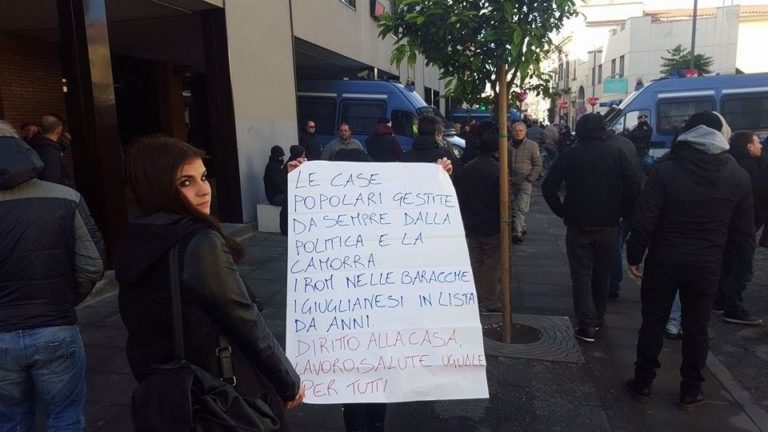 LE CASE
POPOLARI GESTITE
DA SEMPRE DALLA
POLITICA E LA
CAMORRA.
I ROM NELLE BARACCHE
I GIUGLIANESI IN LISTA
DA ANNI.
DIRITTO ALLA CASA,
LAVORO, SALUTE UGUALE
PER TUTTI.